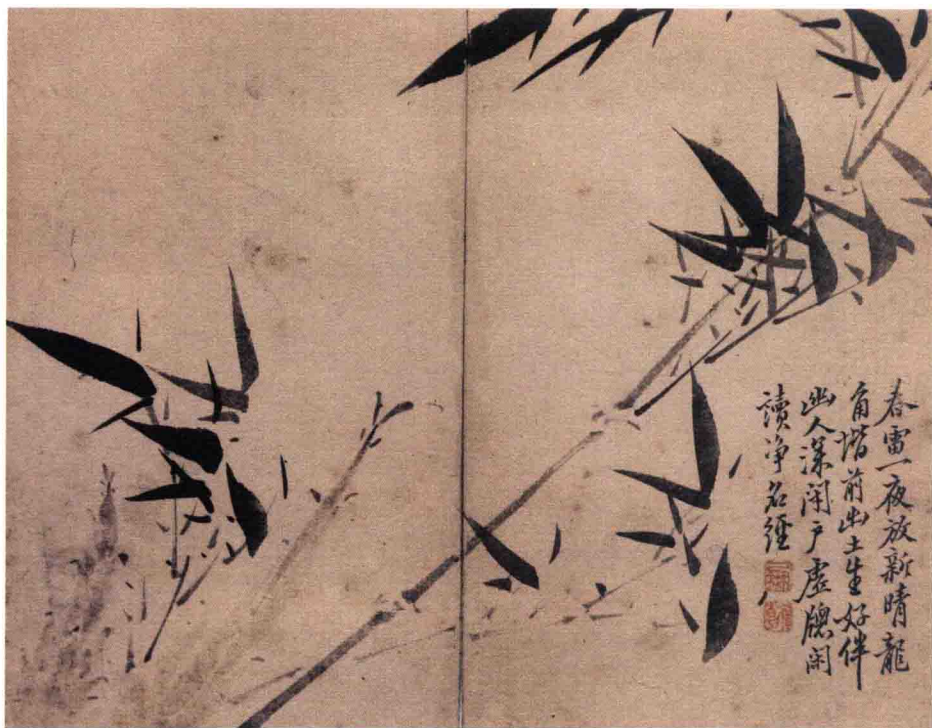 春雷一夜放新晴龍
角堦前出土生好伴
幽人深閉戶虛牕閑
讀净名經